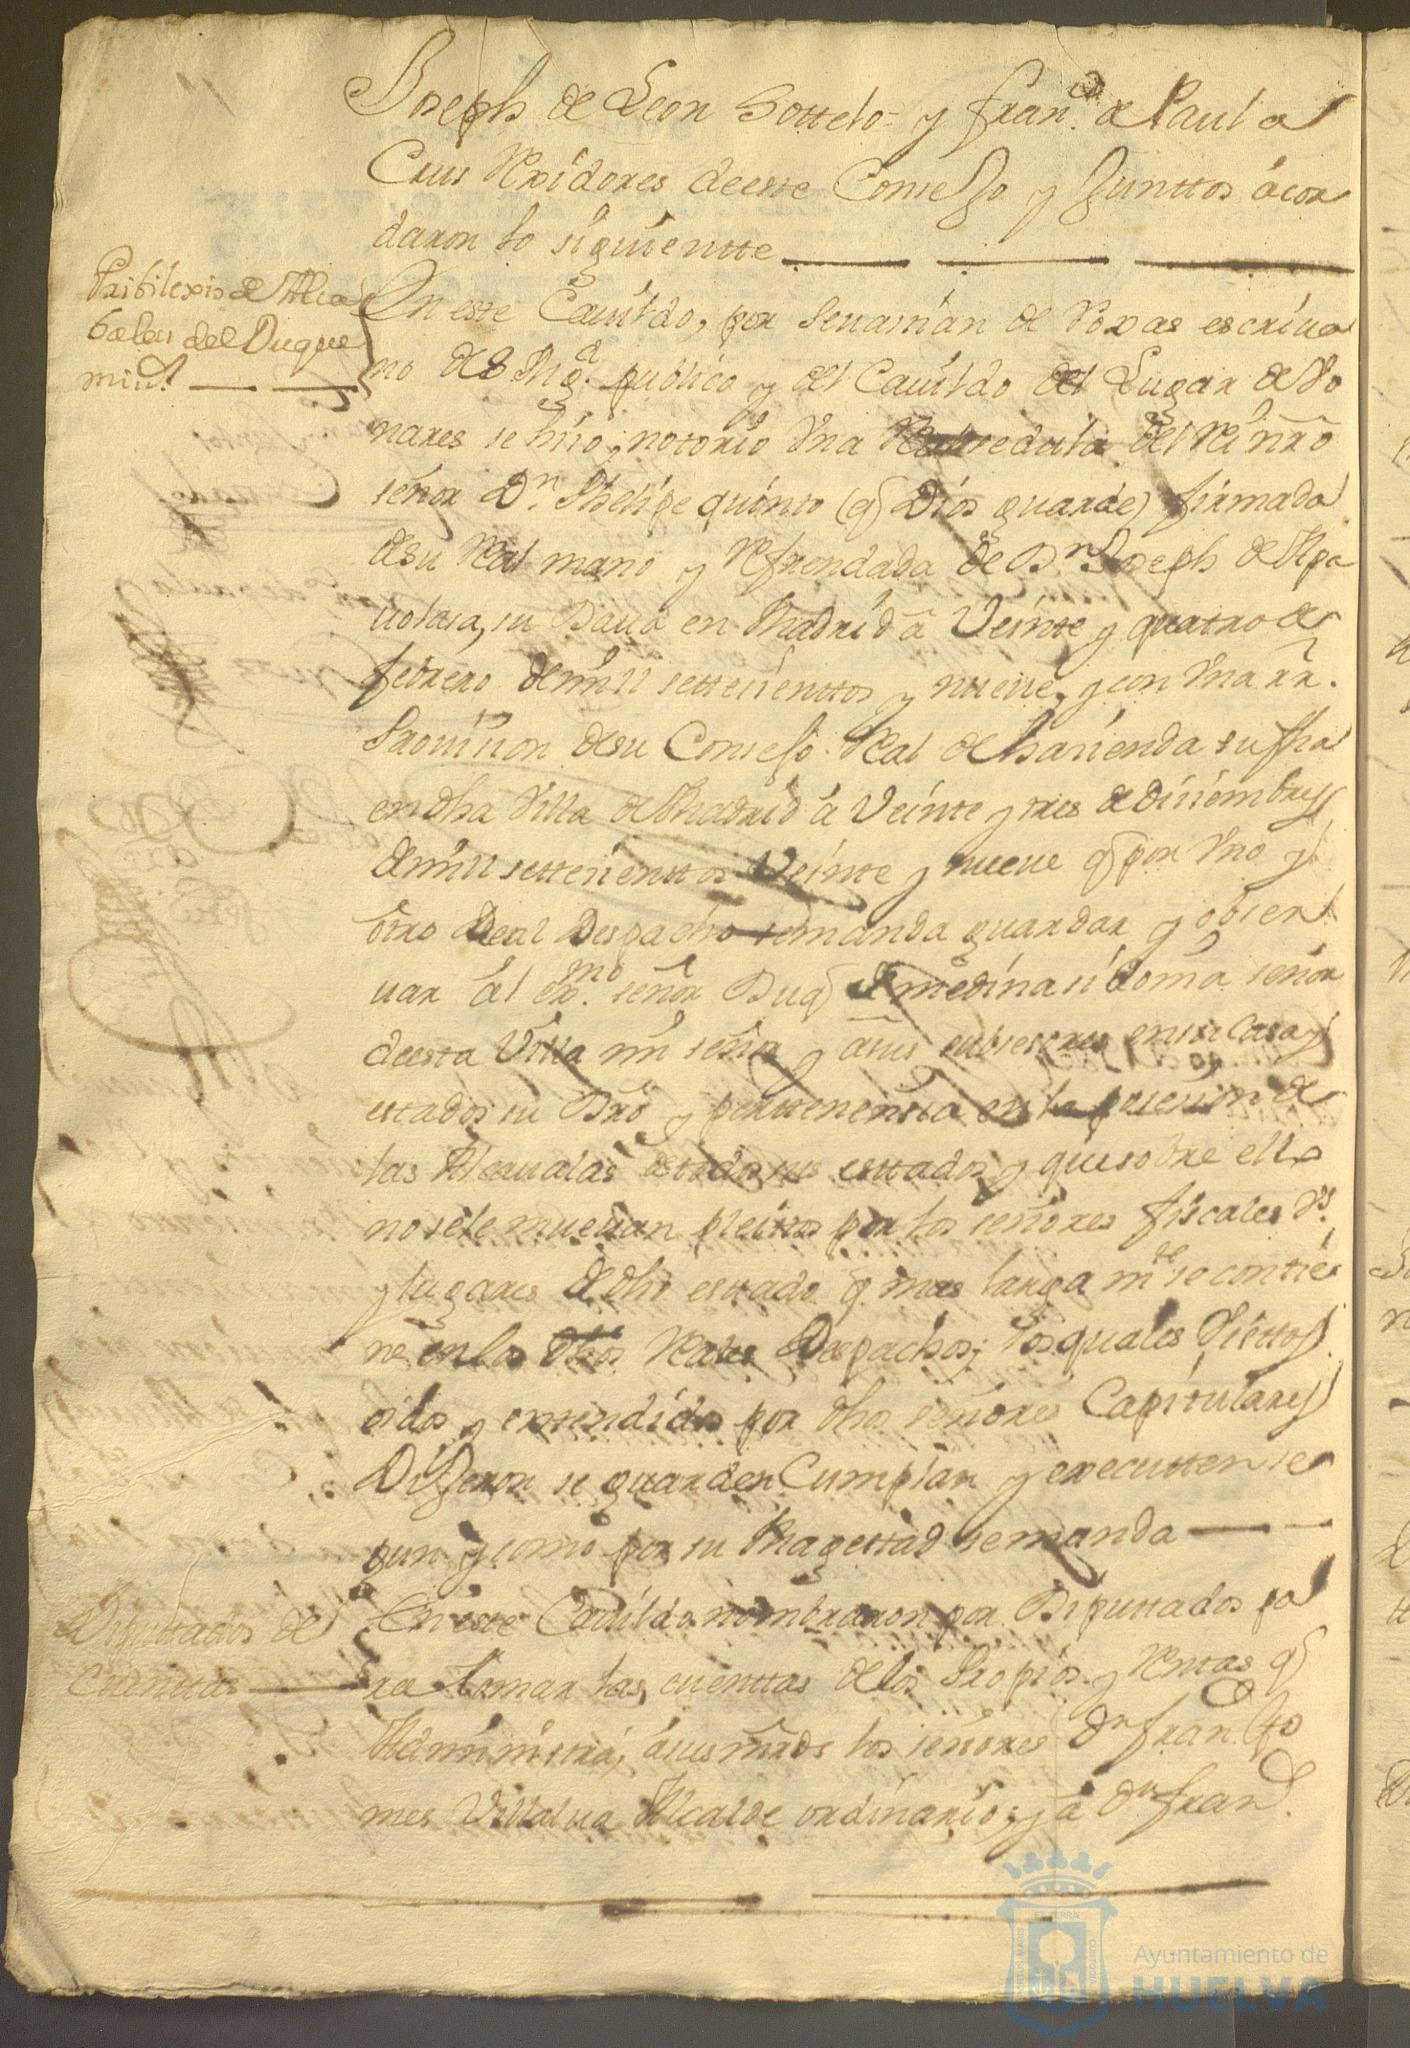 Joseph de Leon Sottelo = y fran.co de Paula
Cruz Rexidores de este Consejo y Junttos acor
daron lo siguientte
Pribilexio de Alca
balas del Duque
mi s.r
En este Cavildo, por Sevastian de Roxas escriva
no de S Mg.d publico y del Cavildo del Lugar de Bo
nares se hizo notorio Una Real cedula del Rei nro
señor Dn. Phelipe quinto (q Dios guarde) firmada
de su Real mano y Refrendada de Dn Joseph de
su Data en Madrid a Veinte y quatro de
febrero de mill settecienttos y nueve, y con Una rr.
Provision de su Consejo Real de hacienda su fha
en dha Villa de Madrid a Veinte y tres de diciembre
de mill settecienttos Veinte y nueve q por Uno y
otro Real Despacho se manda guardar y obser
var al ex.mo señor Duq de medina sidonia señor
de esta Villa mi señor y a sus subsesores en su Casa y
estados su Dro y perttenencia en la posesion de
las Alcavalas de todos sus esttados y que sobre ello
no se le muevan pleittos por los señores fiscales Vs.
y lugares de dho esttado q mas larga mte se contie
ne en los dhos Reales Despachos; los quales Vistos
oidos y entendidos por dhos señores Capitulares
Dijeron se guarden Cumplan y executten se
gun y como por su Magesttad se manda
Diputtados de
Cuenttas
En este Cavildo nombraron por Diputtados pa
ra tomar las cuenttas de los Propios y Rentas q
Administra, a sus mrds los señores Dn fran.co
mes Villalva Alcalde ordinario; y a Dn fran.co
Ayuntamiento de
HUELVA